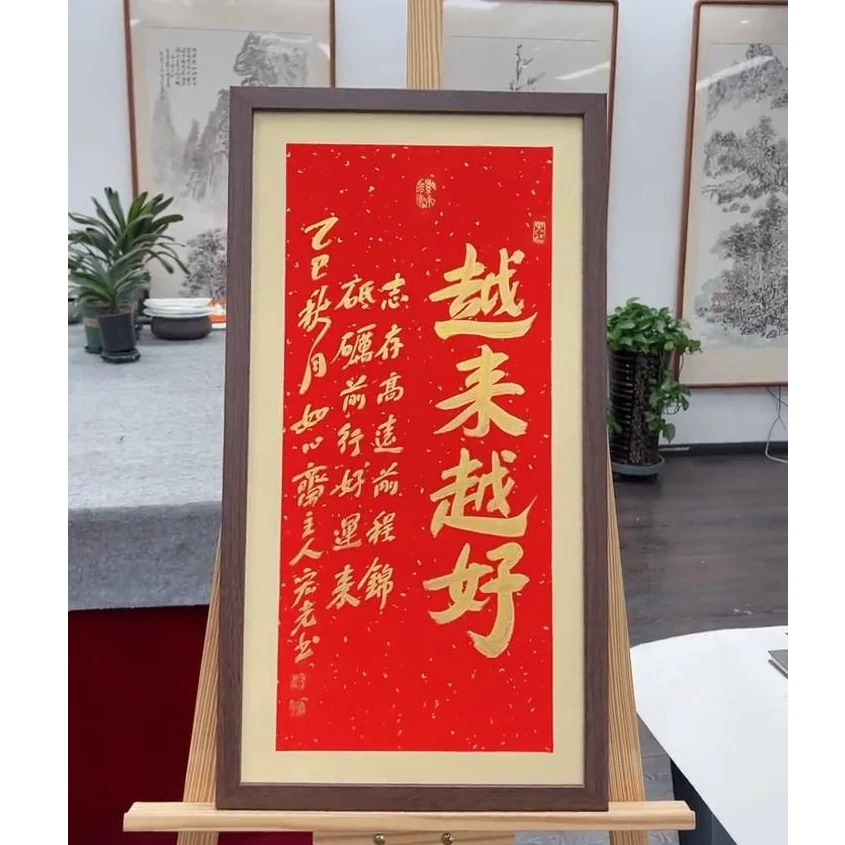 越来越好
志存高遠前程錦
砥礪前行好運来
乙巳秋月如心齋主人宏光书